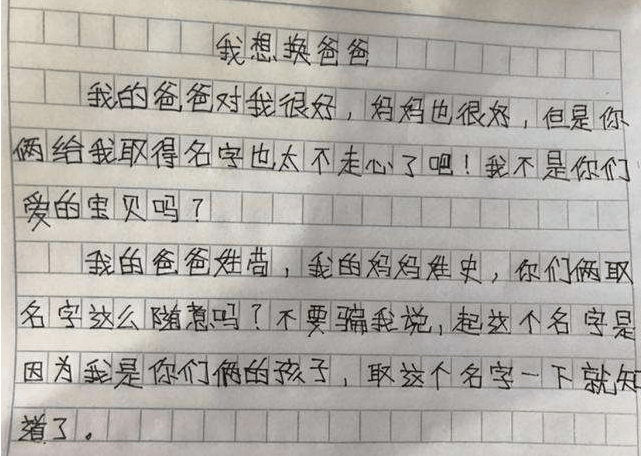 我想换爸爸
我的爸爸对我很好，妈妈也很好，但是你
俩给我取得名字也太不走心了吧！我不是你们
爱的宝贝吗？
我的爸爸姓苟，我的妈妈姓史，你们俩取
名字这么随意吗？不要骗我说，起这个名字是
因为我是你们俩的孩子，取这个名字一下就知
道了。